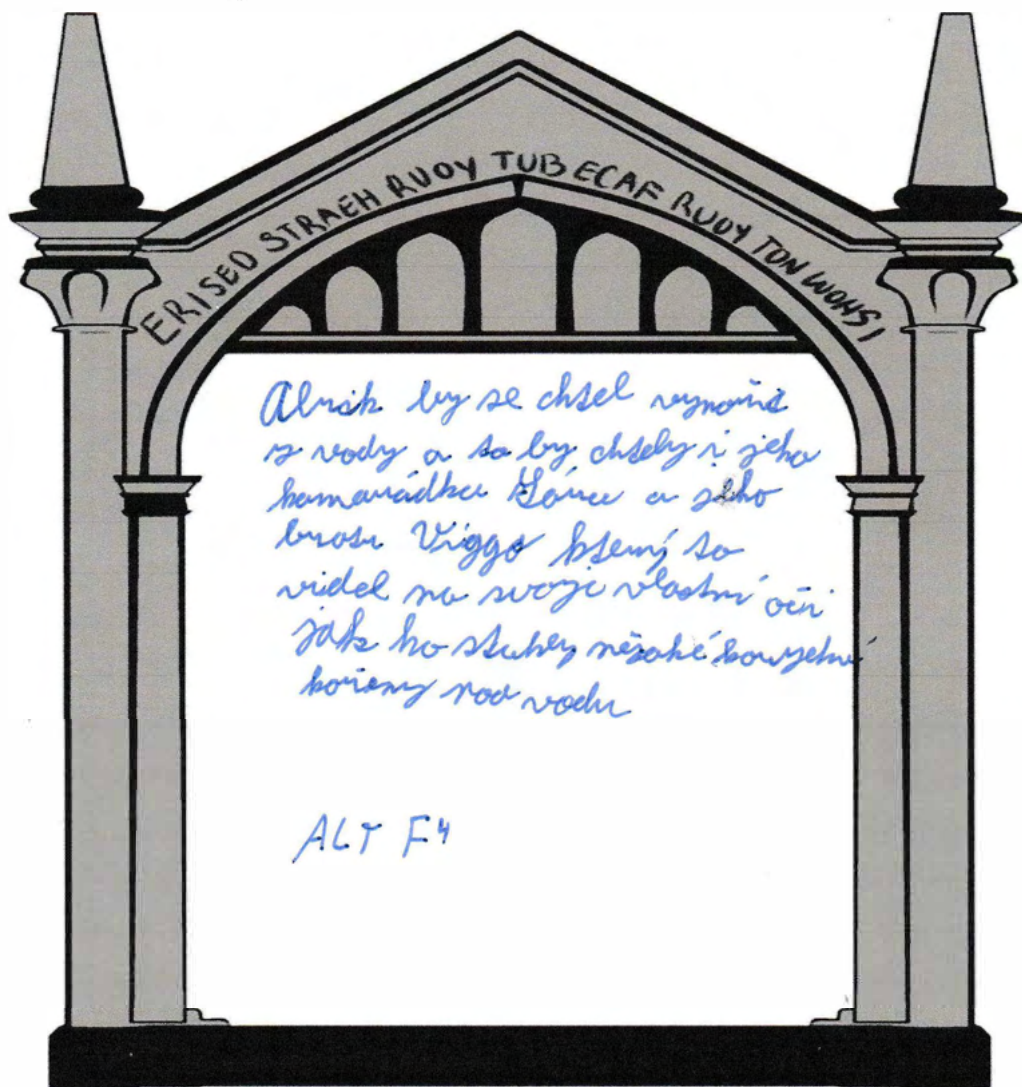 ERISED STRAEH RUOY TUB ECAF RUOY TON WOHSI
Alrik by se chtel vynořit
z vody a to by chtely i jeho
kamarádka a jeho
bratr Viggo který to
videl na svoje vlastní oči
jak ho stahly nějaké kouzelné
kořeny pod vodu
ALT F4